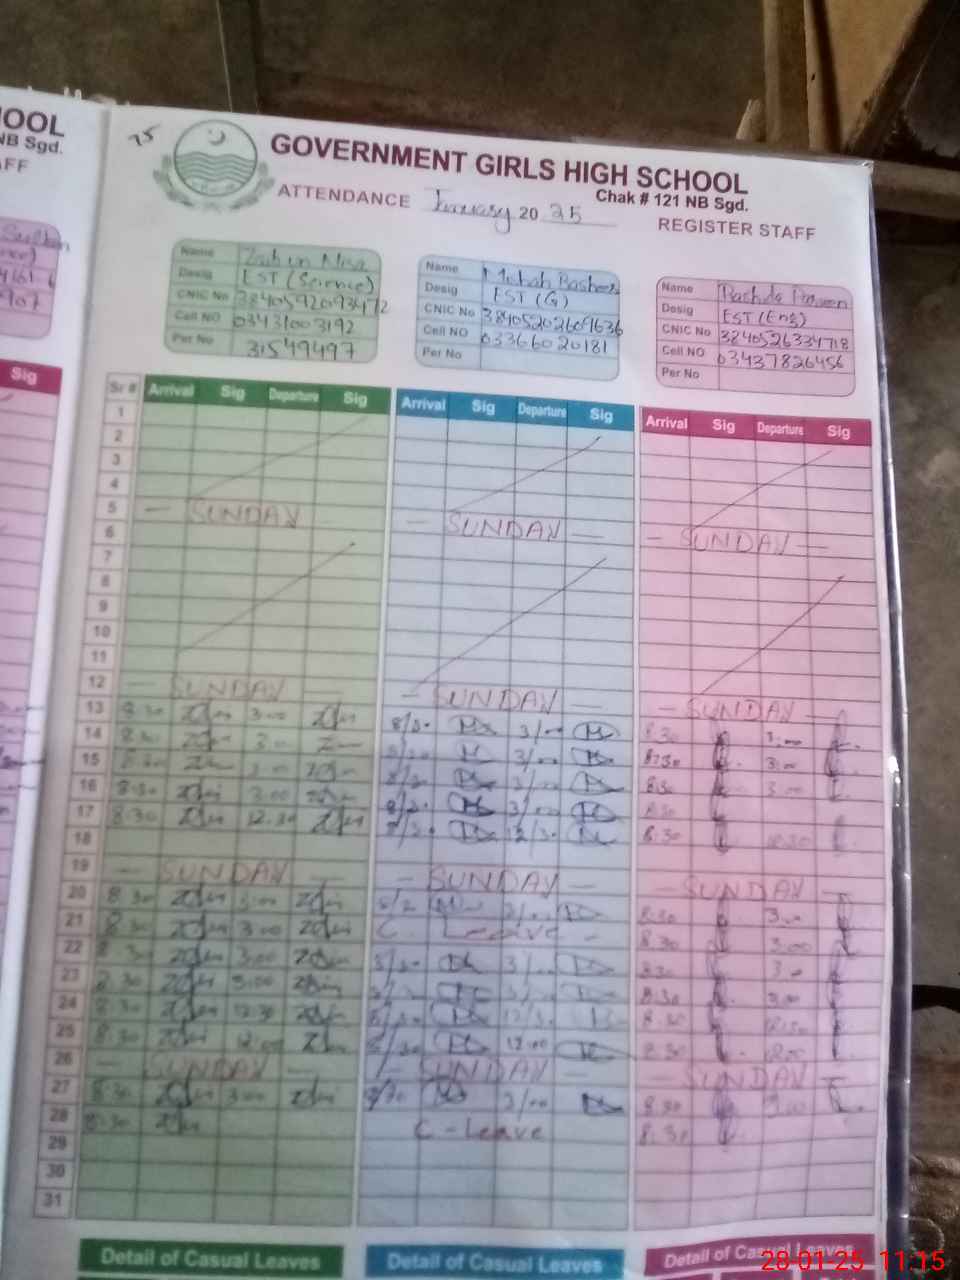 HOOL
NB Sgd.
AFF
Sig
75
GOVERNMENT GIRLS HIGH SCHOOL
Chak # 121 NB Sgd.
ATTENDANCE January 2025
REGISTER STAFF
Name Zaib un Nisa
Desig EST (Science)
CNIC No 3840592093472
Cell NO 03431003192
Per No 31549497
Name Misbah Basheer
Desig EST (G)
CNIC No 3840520260963 6
Cell NO 03366020181
Per No
Name Rashda Praveen
Desig EST (Eng)
CNIC No 3840526334718
Cell NO 03437826456
Per No
Sr # Arrival Sig Departure Sig Arrival Sig Departure Sig Arrival Sig Departure Sig
1
2
3
4
5 — SUNDAY — SUNDAY — — SUNDAY —
6
7
8
9
10
11
12 — SUNDAY — — SUNDAY — — SUNDAY —
13 8:30 3:00 8/30 3/00 8:30 3:00
14 8:30 3:00 8/30 3/00 8:30 3:00
15 8:30 3:00 8/30 3/00 8:30 3:00
16 8:30 3:00 8/30 3/00 8:30
17 8:30 12:30 8/30 12/30 8:30 12:30
18
19 — SUNDAY — — SUNDAY — — SUNDAY —
20 8:30 3:00 3/00 8:30 3:00
21 8:30 3:00 C. Leave - 8:30 3:00
22 8:30 3:00 8/30 3/00 8:30 3:00
23 8:30 3:00 8/30 3/00 8:30 3:00
24 8:30 12:30 8/30 12/30 8:30 12:30
25 8:30 12:00 8/30 12:00 8:30 12:00
26 — SUNDAY — — SUNDAY — — SUNDAY —
27 8:30 3:00 8/30 3/00 8:30 3:00
28 8:30 C - Leave 8:30
29
30
31
Detail of Casual Leaves Detail of Casual Leaves Detail of Casual Leaves
28-01-25 11:15